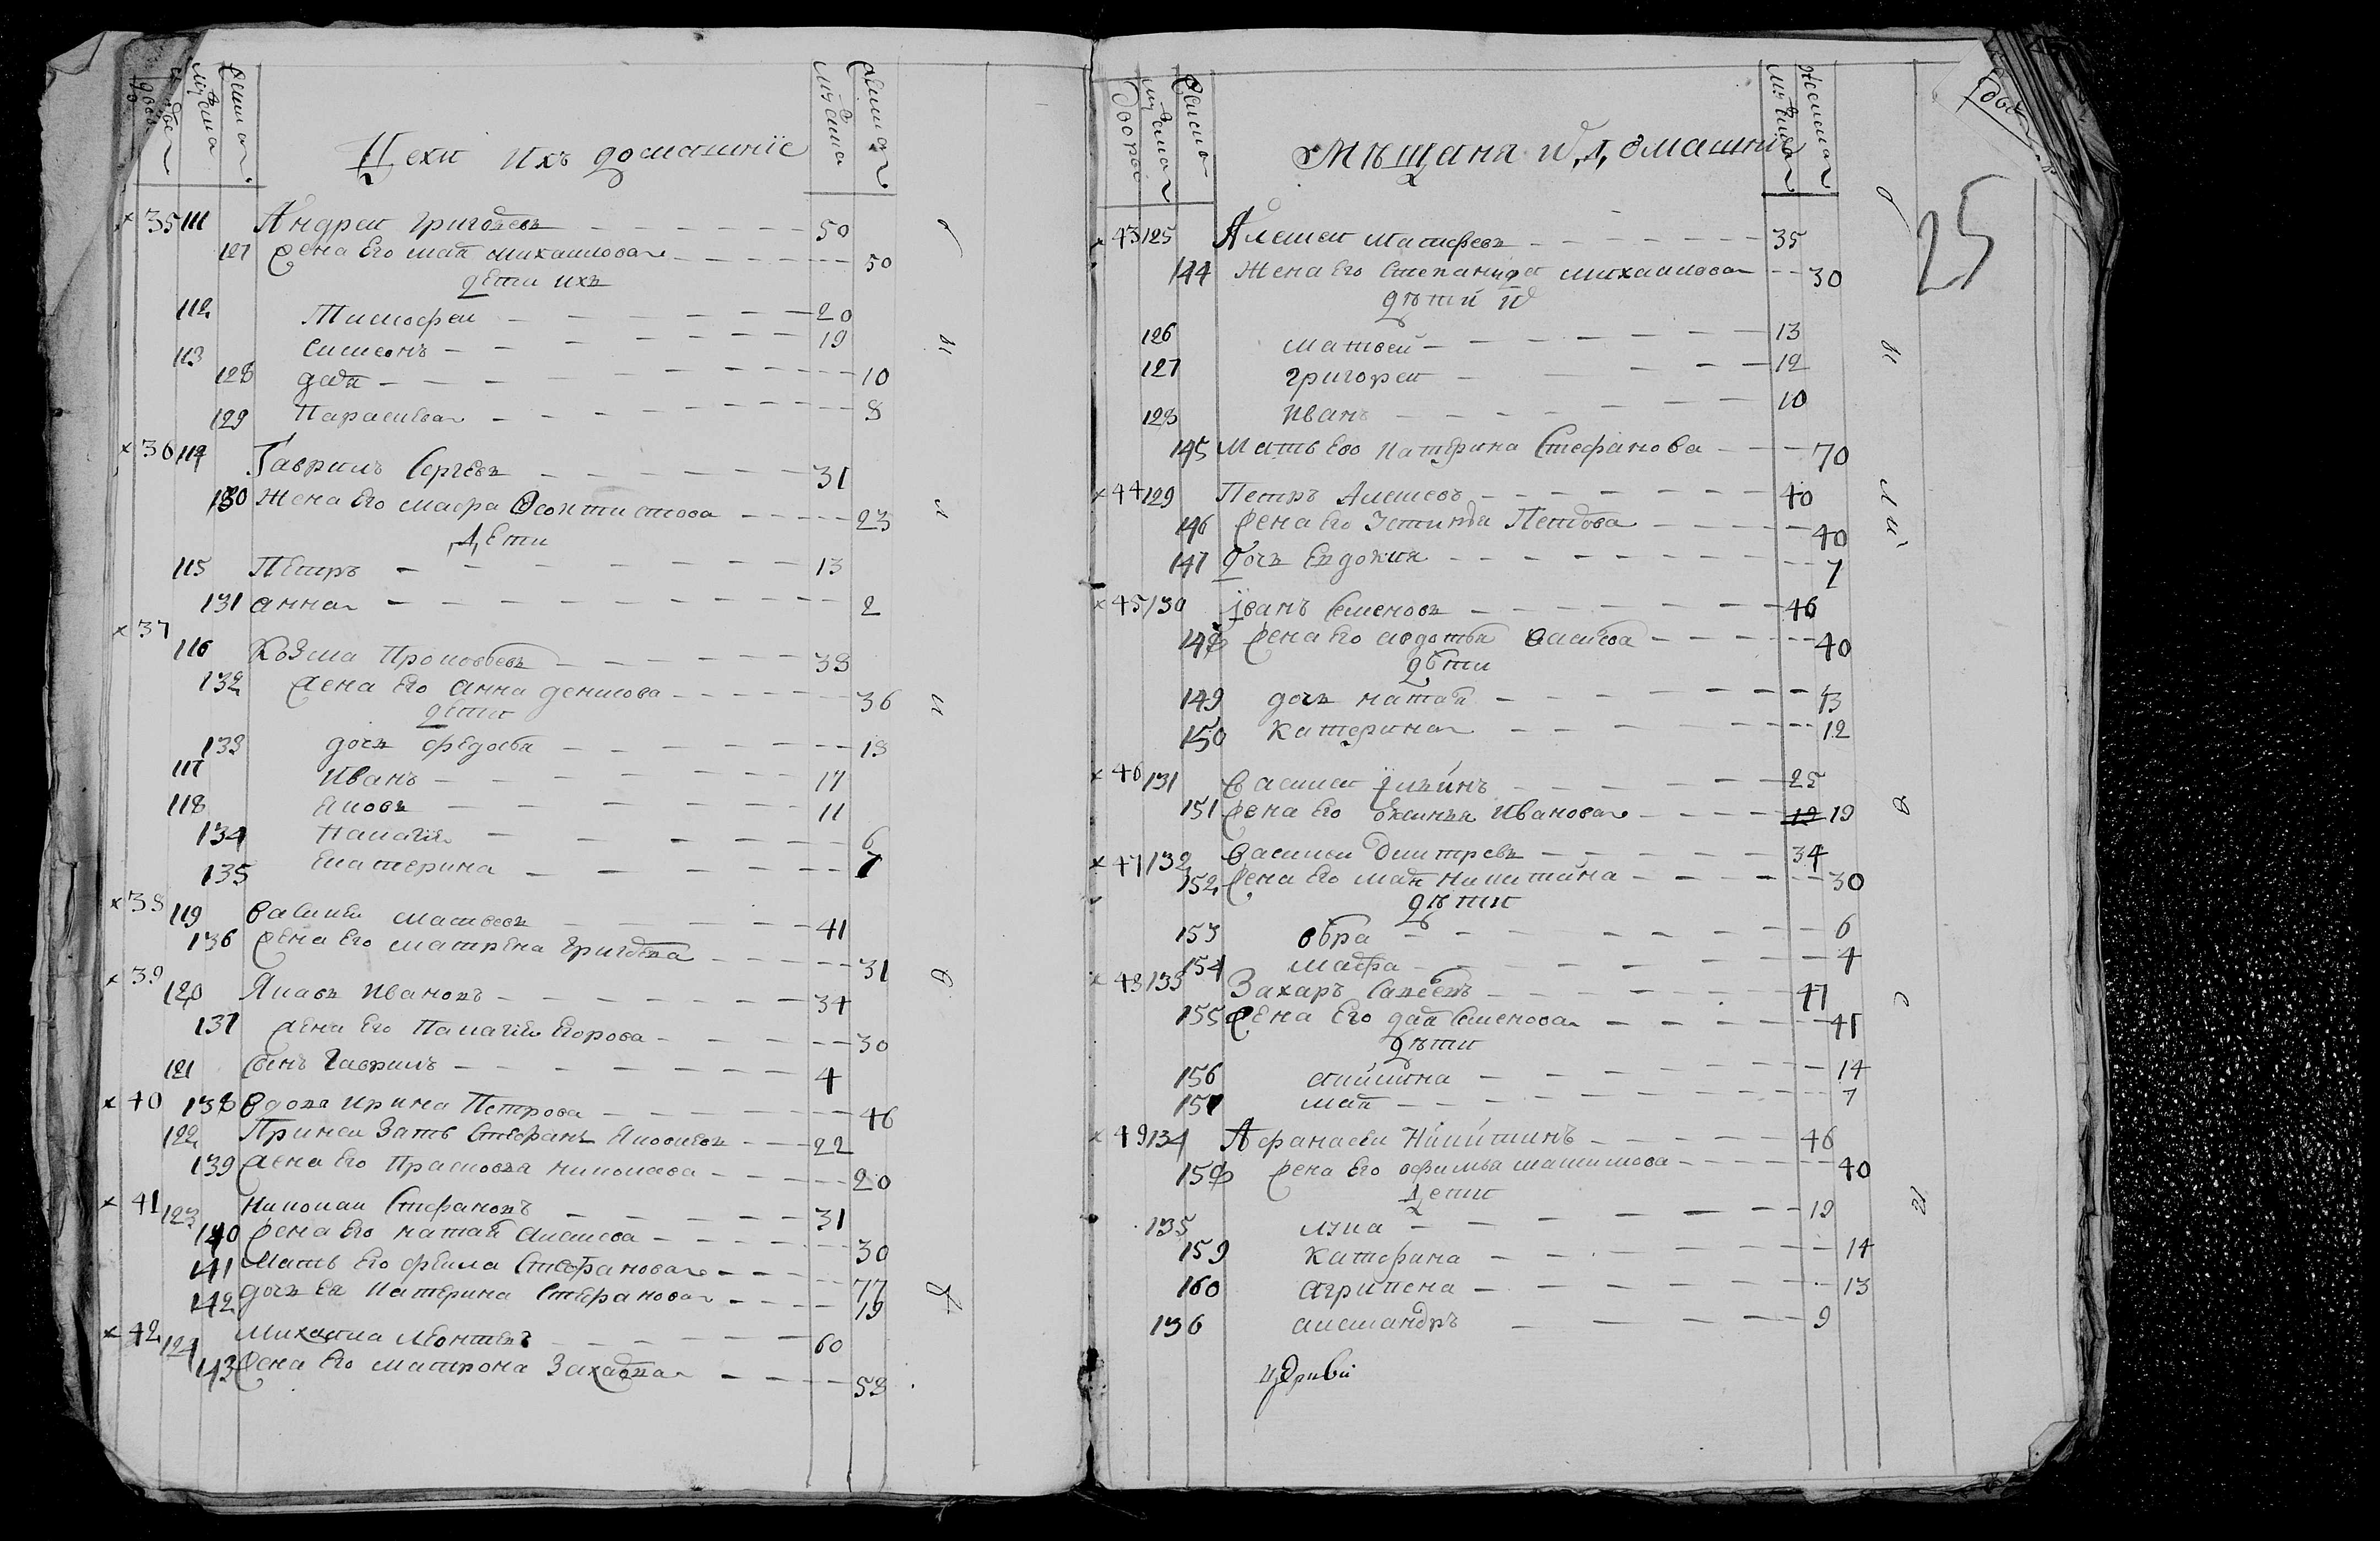 Цехи ихъ домашніе
35 111 Андреи Григоревъ 50
127 Жена Его Михаилова 50
дети ихъ
112 Тимофеи 20
113 Симеонъ 19
128 10
129 Парасковя 8
36 114 Гаврилъ Сергевъ 31
130 Жена Его Марфа 23
Дети
115 Петръ 13
131 анна 2
37
116 Козма Прокофьевъ 38
132 Жена Его анна денисова 36
дети
133 дочь федосья 18
117 Иванъ 17
118 Яковъ 11
134 Палагія 6
135 Екатерина 7
38 119 Василей Матвеевъ 41
136 Жена Его матрена Григорева 31
39 120 Яковъ Ивановъ 34
137 Жена Его Палагія Егорова 30
121 Сынъ Гаврилъ 4
40 138 Вдова Ирина Петрова 46
122 Приней Зать Стефанъ Яковлевъ 22
139 Жена Его Прасковья николаева 20
41 123 Николаи Стефановъ 31
140 Жена Его натал 30
141 Мать Его Стефановая 77
142 дочь Ея Катерина Стефановая 19
42 124 Михаила Леонтевъ 60
143 Жена Его матрона Захарова 58
Мѣщаня и, д, омашніе
25
43 125 Алексеи Матфеевъ 35
144 Жена Его Степанида михаилова 30
дѣти и
126 матвей 13
127 григореи 12
128 иванъ 10
145 Мать Его Катерина Стефанова 70
44 129 Петръ Алексеевъ 40
146 Жена Его Устинья Петрова 40
147 дочь Евдокия 7
45 130 Іванъ Семеновъ 46
148 Жена Его авдотья 40
дѣти
149 дочь натал 13
150 катерина 12
46 131 Василеи Ильинъ 25
151 Жена Его Ивановая 19
47 132 Василеи Дмитревъ 34
152 Жена Его Никитина 30
дѣти
153 6
154 марфа 4
48 133 Захаръ 47
155 Жена Его Семенова 45
дѣти
156 акилина 14
157 7
49 134 Афанасеи Никитинъ 46
158 Жена Его офимья 40
Дети
135 лука 19
159 катерина 14
160 агрипена 13
136 александръ 9
церкви